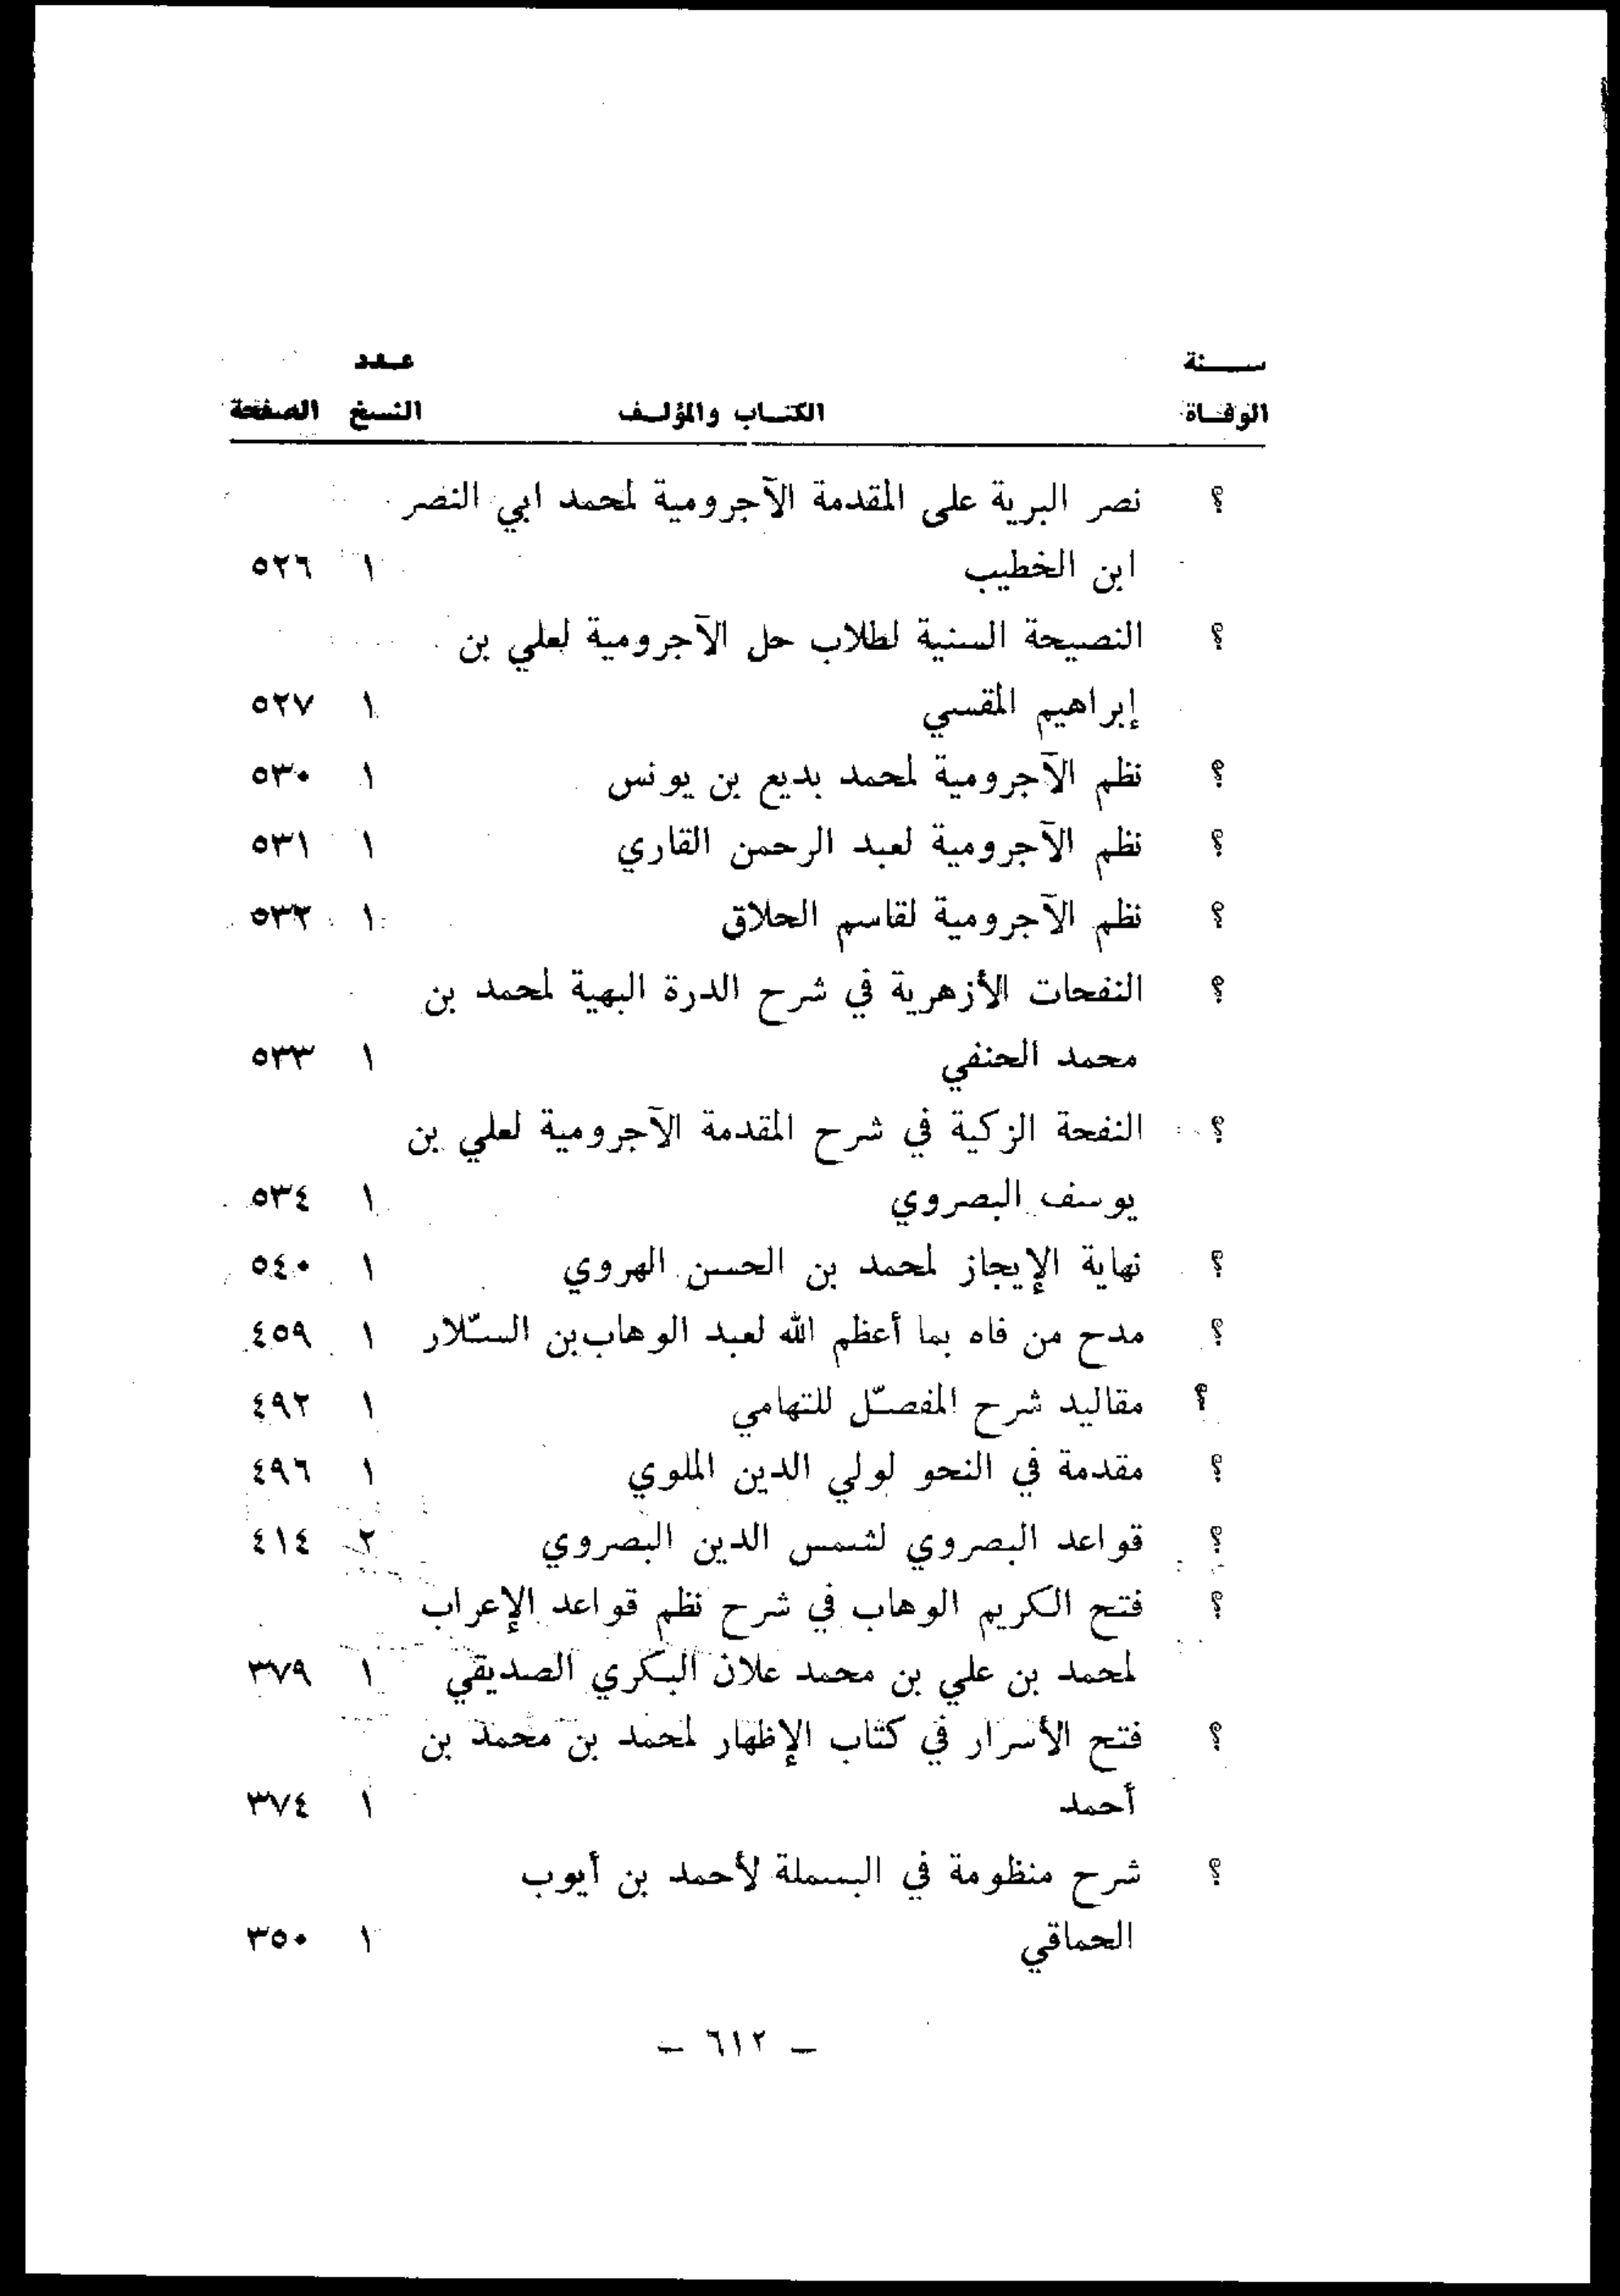 سنة عدد
الوفاة الكتاب والمؤلف النسخ الصفحة
؟ نصر البرية على المقدمة الآجرومية لمحمد ابي النصر
ابن الخطيب ١ ٥٢٦
؟ النصيحة السنية لطلاب حل الآجرومية لعلي بن
إبراهيم المقسي ١ ٥٢٧
؟ نظم الآجرومية لمحمد بديع بن يونس ١ ٥٣٠
؟ نظم الآجرومية لعبد الرحمن القاري ١ ٥٣١
؟ نظم الآجرومية لقاسم الحلاق ١ ٥٣٢
؟ النفحات الأزهرية في شرح الدرة البهية لمحمد بن
محمد الحنفي ١ ٥٣٣
؟ النفحة الزكية في شرح المقدمة الآجرومية لعلي بن
يوسف البصروي ١ ٥٣٤
؟ نهاية الإيجاز لمحمد بن الحسن الهروي ١ ٥٤٠
؟ مدح من فاه بما أعظم الله لعبد الوهاب بن السّلار ١ ٤٥٩
؟ مقاليد شرح المفصّل للتهامي ١ ٤٩٢
؟ مقدمة في النحو لولي الدين الملوي ١ ٤٩٦
؟ قواعد البصروي لشمس الدين البصروي ٢ ٤١٤
؟ فتح الكريم الوهاب في شرح نظم قواعد الإعراب
لمحمد بن علي بن محمد علان البكري الصديقي ١ ٣٧٩
؟ فتح الأسرار في كتاب الإظهار لمحمد بن محمد بن
أحمد ١ ٣٧٤
؟ شرح منظومة في البسملة لأحمد بن أيوب
الحماقي ١ ٣٥٠
— ٦١٢ —